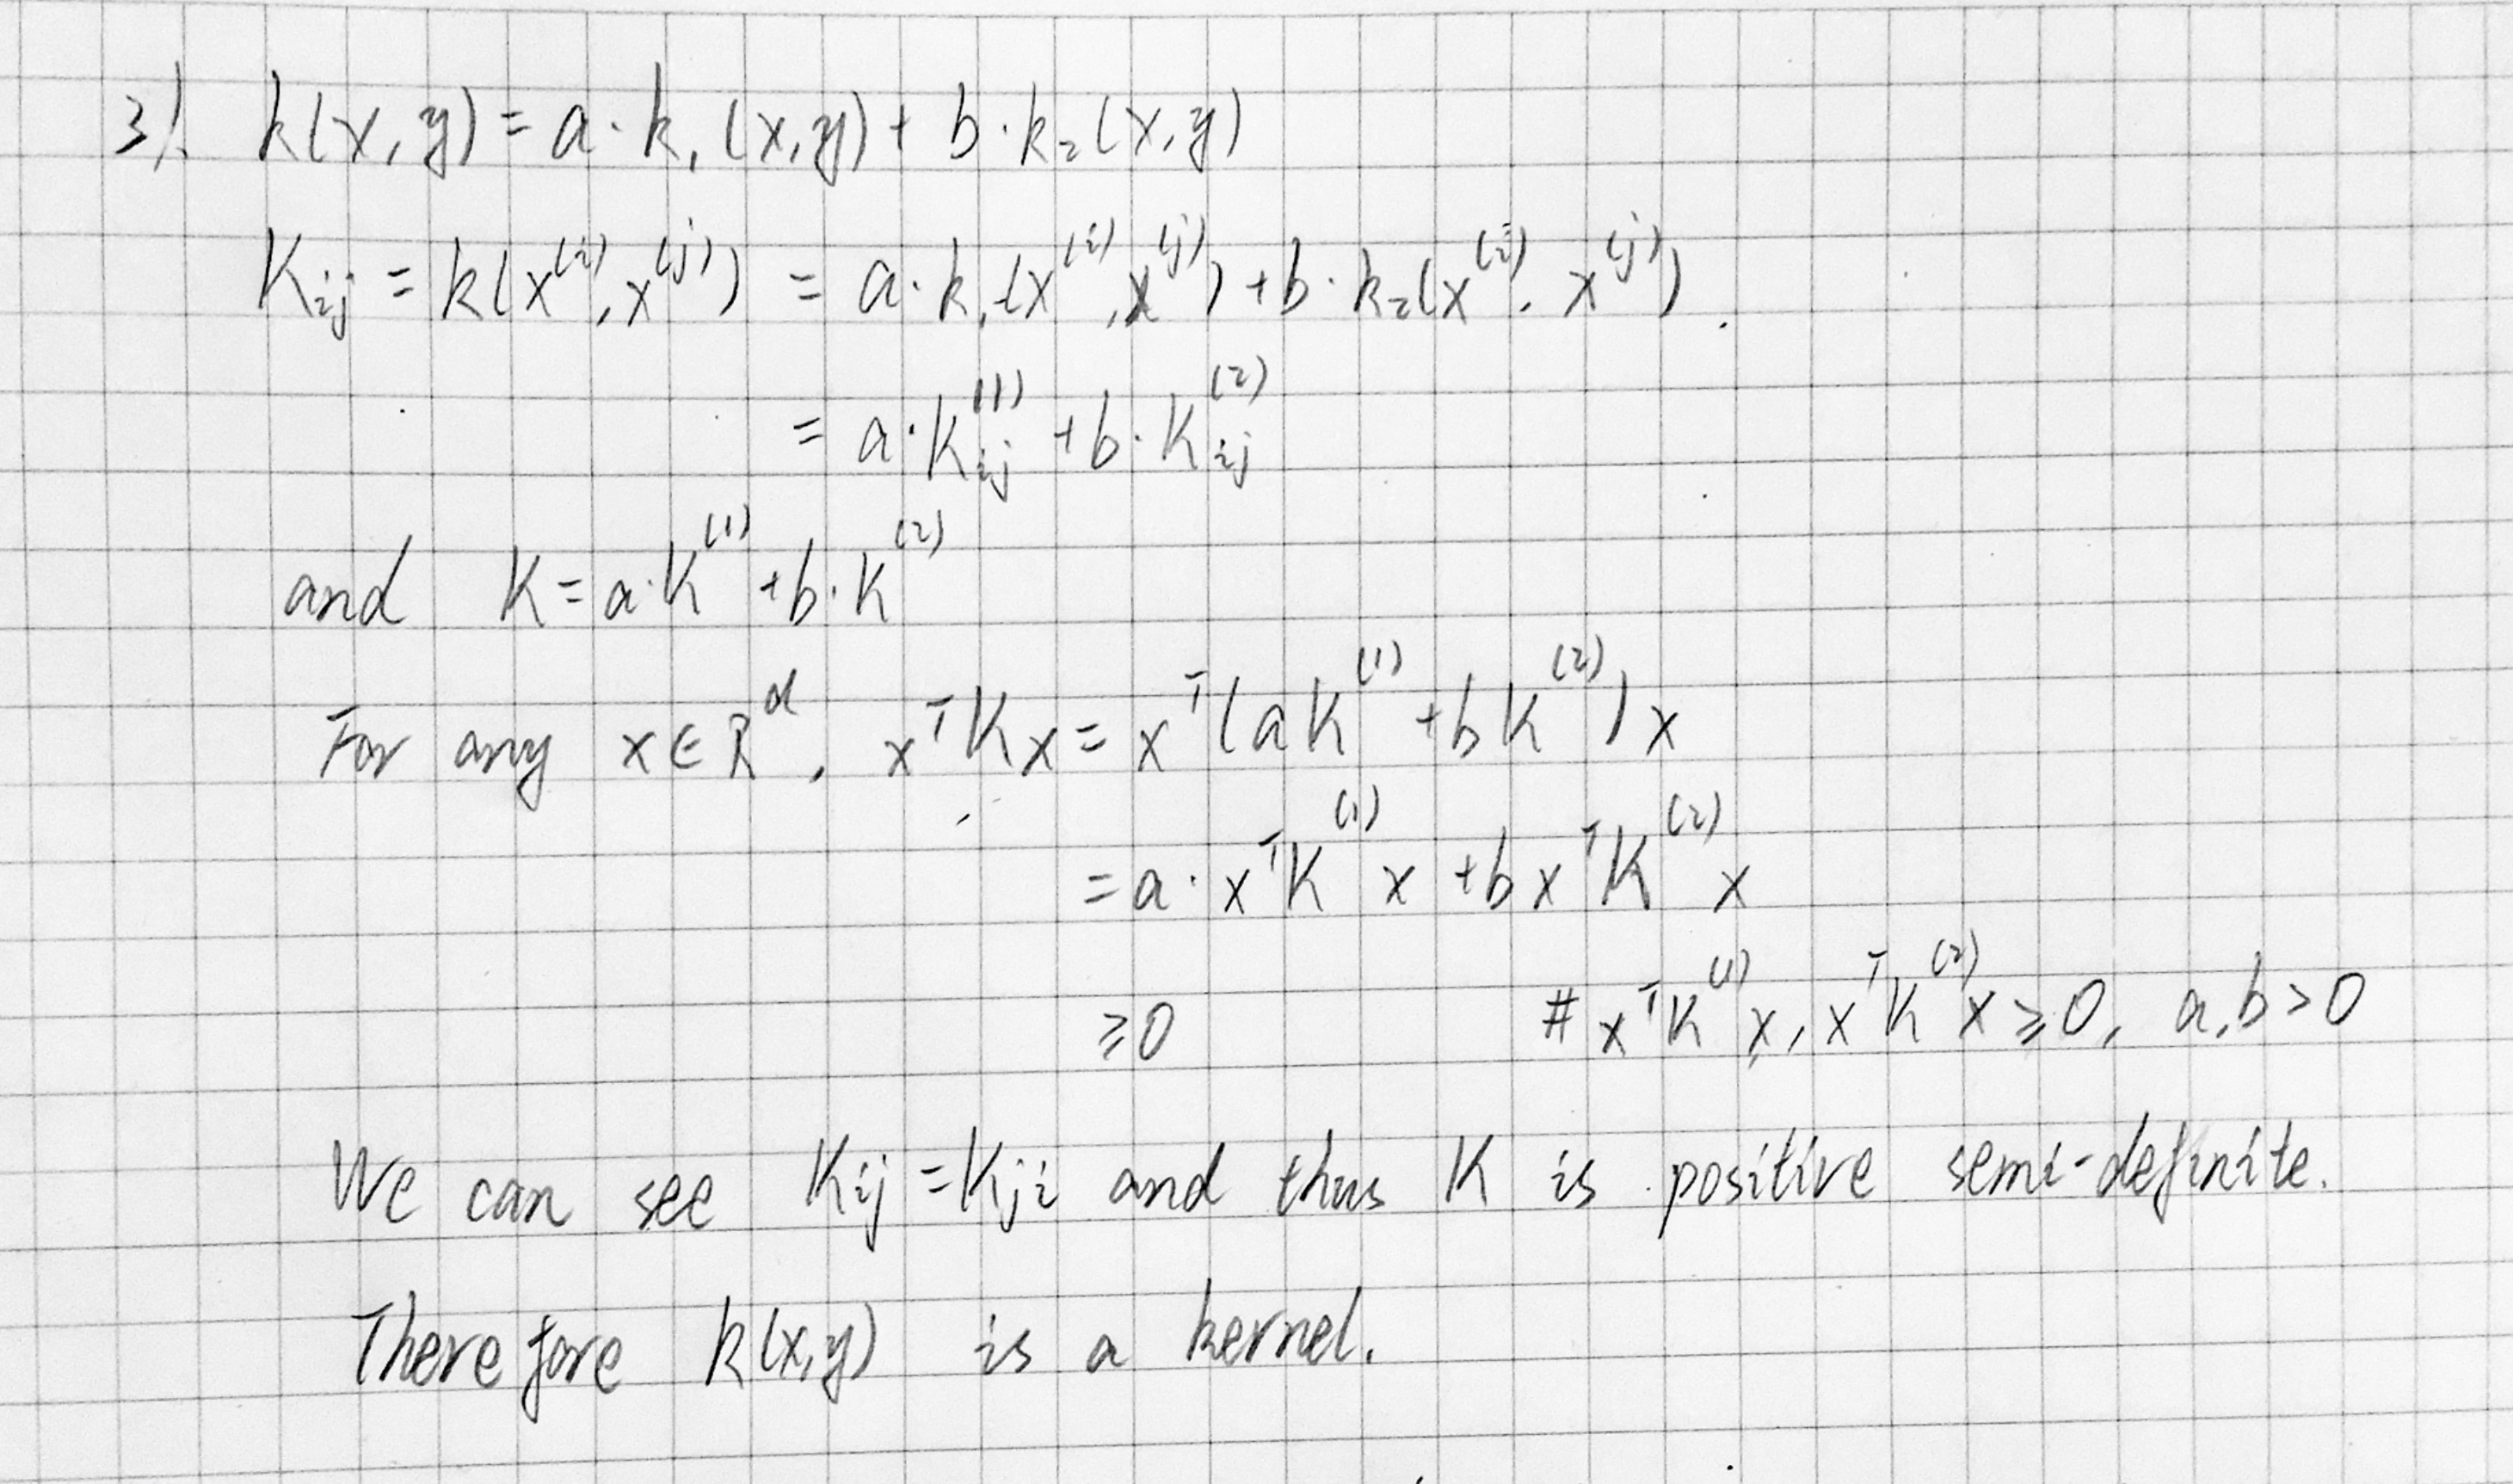 3/. k(x, y) = a · k₁ (x,y) + b · k₂(x,y)
Kᵢⱼ = k(x⁽ⁱ⁾, x⁽ʲ⁾) = a · k₁(x⁽ⁱ⁾, x⁽ʲ⁾) + b · k₂(x⁽ⁱ⁾, x⁽ʲ⁾).
= a · Kᵢⱼ⁽¹⁾ + b · Kᵢⱼ⁽²⁾
and K = a · K⁽¹⁾ + b · K⁽²⁾
For any x ∈ Rᵈ, xᵀKx = xᵀ(aK⁽¹⁾ + bK⁽²⁾)x
= a · xᵀK⁽¹⁾x + bxᵀK⁽²⁾x
≥ 0 # xᵀK⁽¹⁾x, xᵀK⁽²⁾x ≥ 0, a,b > 0
We can see Kij = Kji and thus K is positive semi-definite.
Therefore k(x,y) is a kernel.